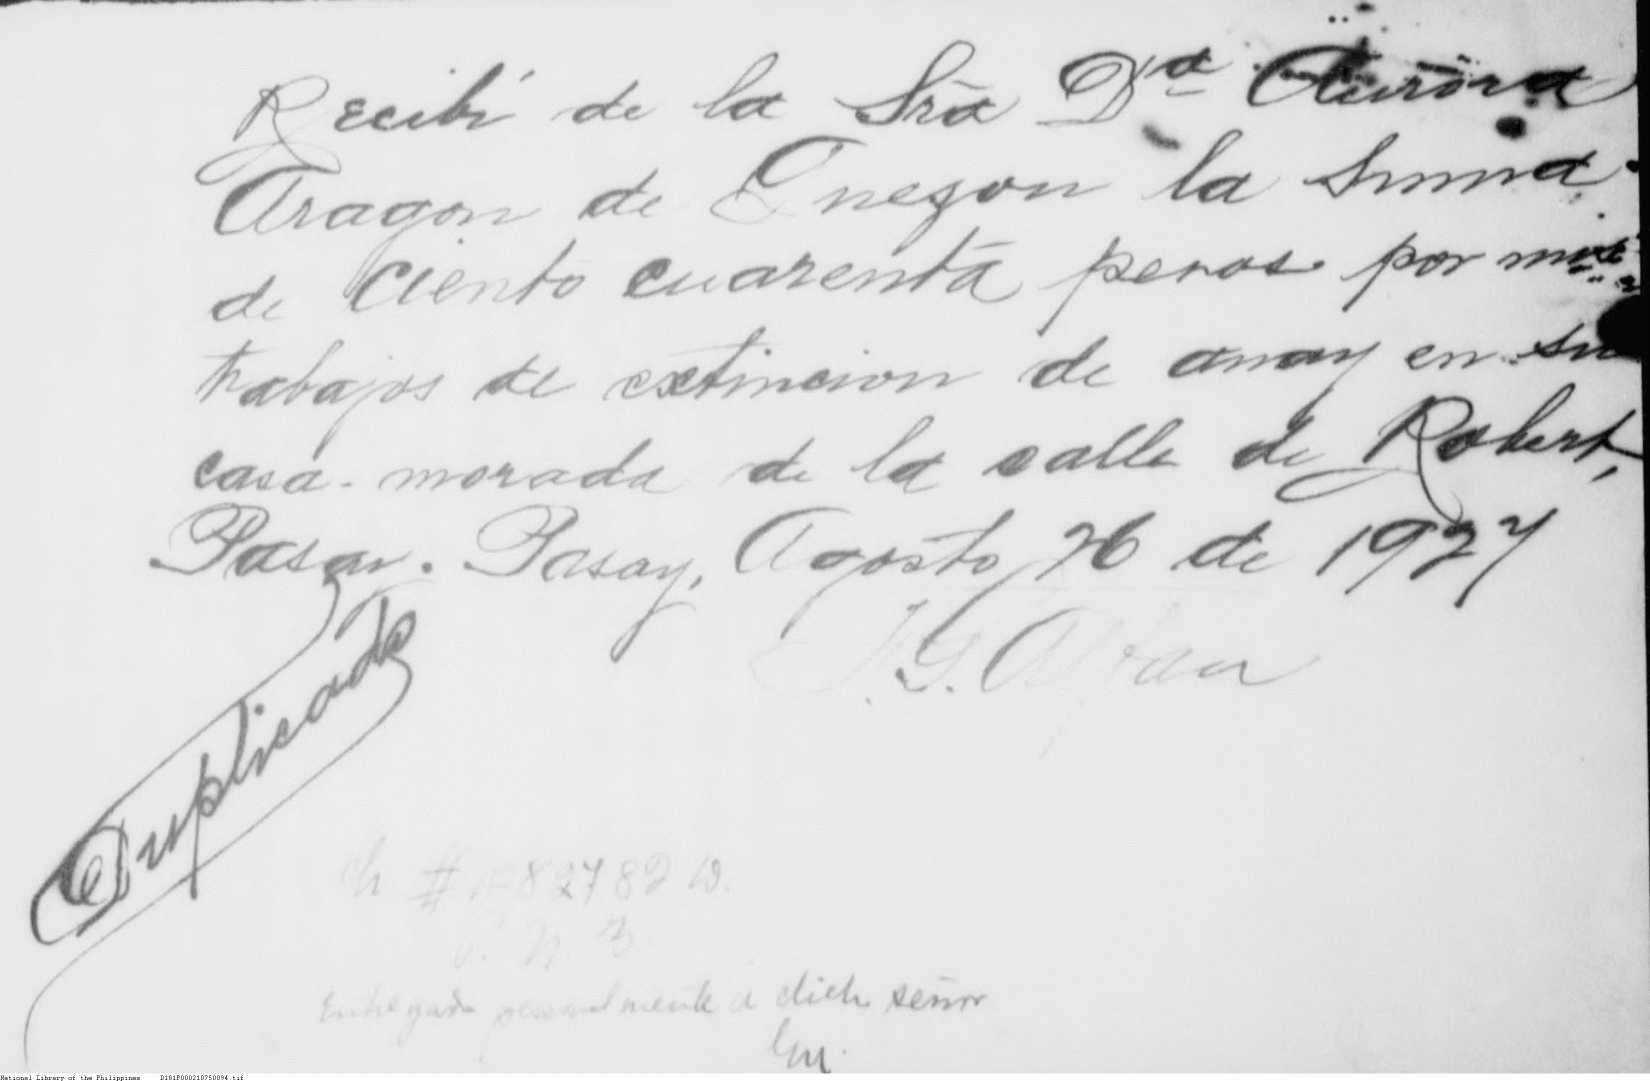 Recibí de la Sra Dª Aurora
Aragon de Quezon la suma
de ciento cuarenta pesos por mis
trabajos de extincion de anay en su
casa-morada de la calle de Robert,
Pasay. Pasay, Agosto 26 de 1927
J. G. Alfan
Duplicado
Ch # 82782 D.
P. N. B.
Entregado personalmente a dicho señor
National Library of the Philippines D101P000210750094.tif